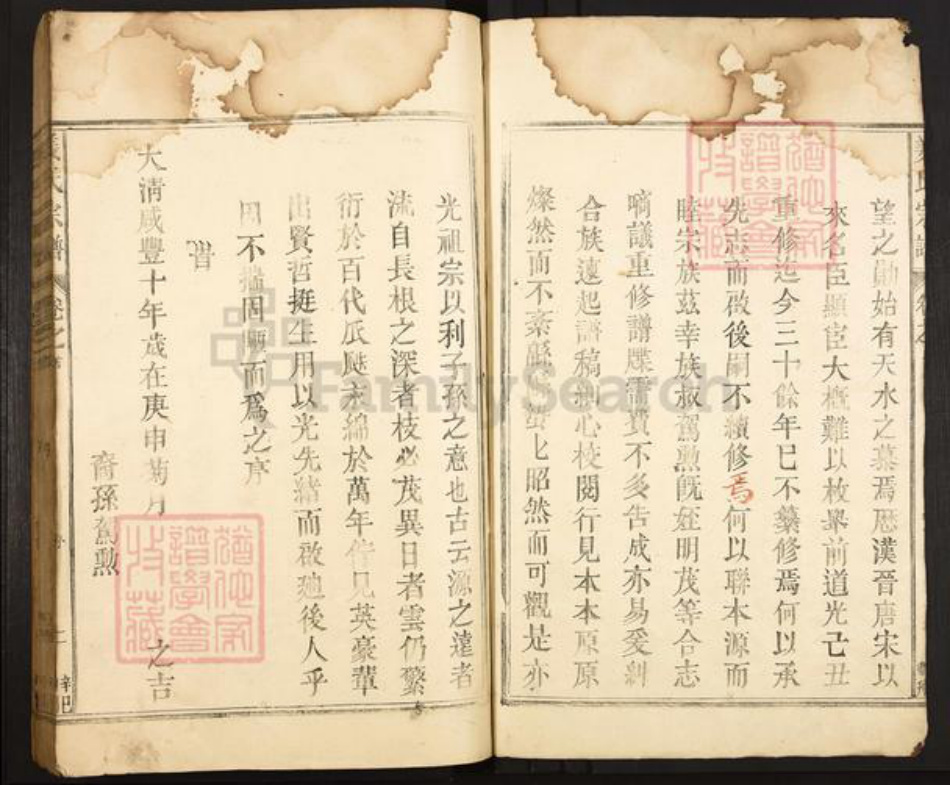 望之勛始有天水之慕焉歷漢晉唐宋以
來名臣顯宦大概難以枚舉前道光己丑
重修迄今三十餘年巳不纂修焉何以承
先志而啟後嗣不續修焉何以聯本源而
睦宗族茲幸族叔駕勲旣姪明茂等合志
議重修譜牒需費不多告成亦易爰糾
合族遠起譜稿細心校閱行見本本原原
燦然而不紊 昭然而可觀是亦
光祖宗以利子孫之意也古云源之遠者
流自長根之深者枝必茂異日者雲仍繁
衍於百代瓜瓞永綿於萬年作見英豪輩
出賢哲挺生用以光先緒而啟廸後人乎
因不揣固陋而爲之序
大清咸豐十年歲在庚申菊月
之吉
裔孫駕勲
氏宗譜
卷之
FamilySearch
猶他家
譜學會
收藏
猶他家
譜學會
收藏